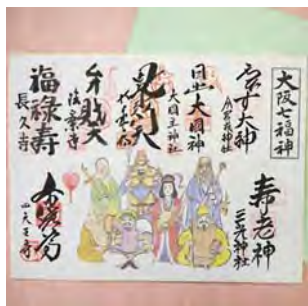 大阪七福神
ゑびす大神
今宮戎神社
日出大国神
大国主神社
毘沙門天
大乗坊
弁財天
法案寺
福禄寿
長久寺
寿老神
三光神社
布袋尊
四天王寺